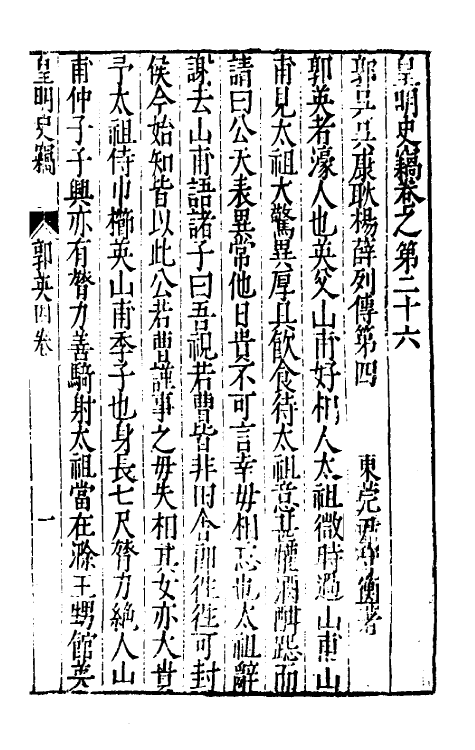 皇明史竊卷之第二十六
郭吳吳康耿楊薛列傳第四　東莞尹守衡著
郭英者濠人也英父山甫好相人太祖微時過山甫山
甫見太祖大驚異厚具飲食待太祖意甚懽酒酣跽而
請曰公天表異常他日貴不可言幸毋相忘也太祖辭
謝去山甫語諸子曰吾視若曹皆非田舍郎往往可封
侯今始知皆以此公若曹謹事之毋失相其女亦大貴
予太祖侍巾櫛英山甫季子也身長七尺膂力絶人山
甫仲子子興亦有膂力善騎射太祖當在滁王甥館英
皇明史竊　郭英四卷　一